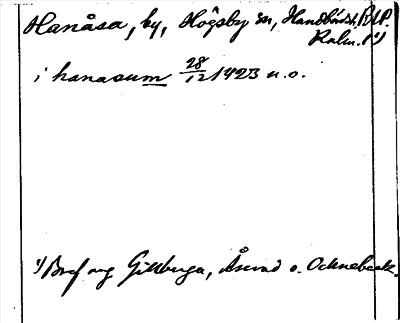 Hanåsa, by, Högsby sn, Handbörds, RAP.
Kalm. ¹)
i hanasum 28/12 1423 u.o.
¹) Bref ang Gillberga, Åserad o. Ocknebeck.